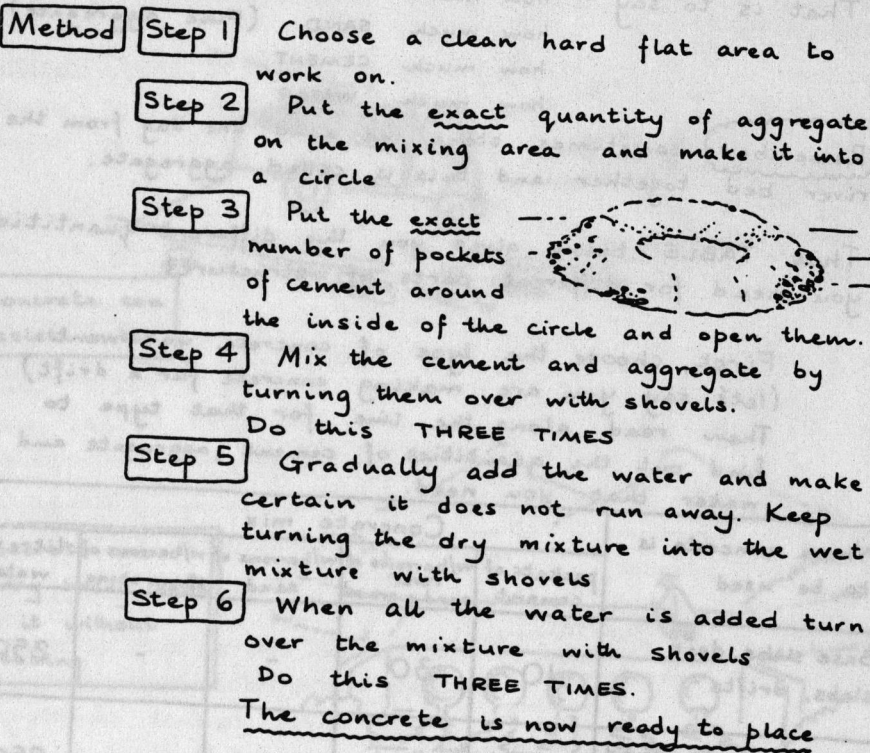 Method Step 1 Choose a clean hard flat area to
work on.
Step 2 Put the exact quantity of aggregate
on the mixing area and make it into
a circle
Step 3 Put the exact
number of pockets
of cement around
the inside of the circle and open them.
Step 4 Mix the cement and aggregate by
turning them over with shovels.
Do this THREE TIMES
Step 5 Gradually add the water and make
certain it does not run away. Keep
turning the dry mixture into the wet
mixture with shovels
Step 6 When all the water is added turn
over the mixture with shovels
Do this THREE TIMES.
The concrete is now ready to place